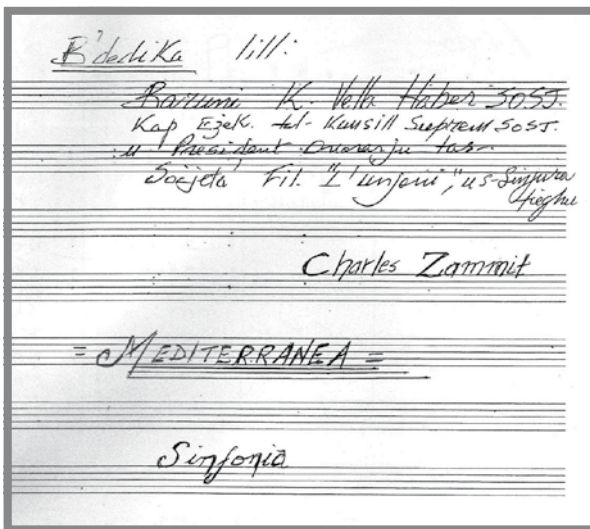 B'dedika lill:
Baruni K. Vella Haber SOSJ.
Kap Eżek. tal-Kunsill Suprem SOSJ.
u President Onorarju tas-
Soċjetá Fil. "L'unjoni", u s-Sinjura
tieghu
Charles Zammit
= MEDITERRANEA =
Sinfonia